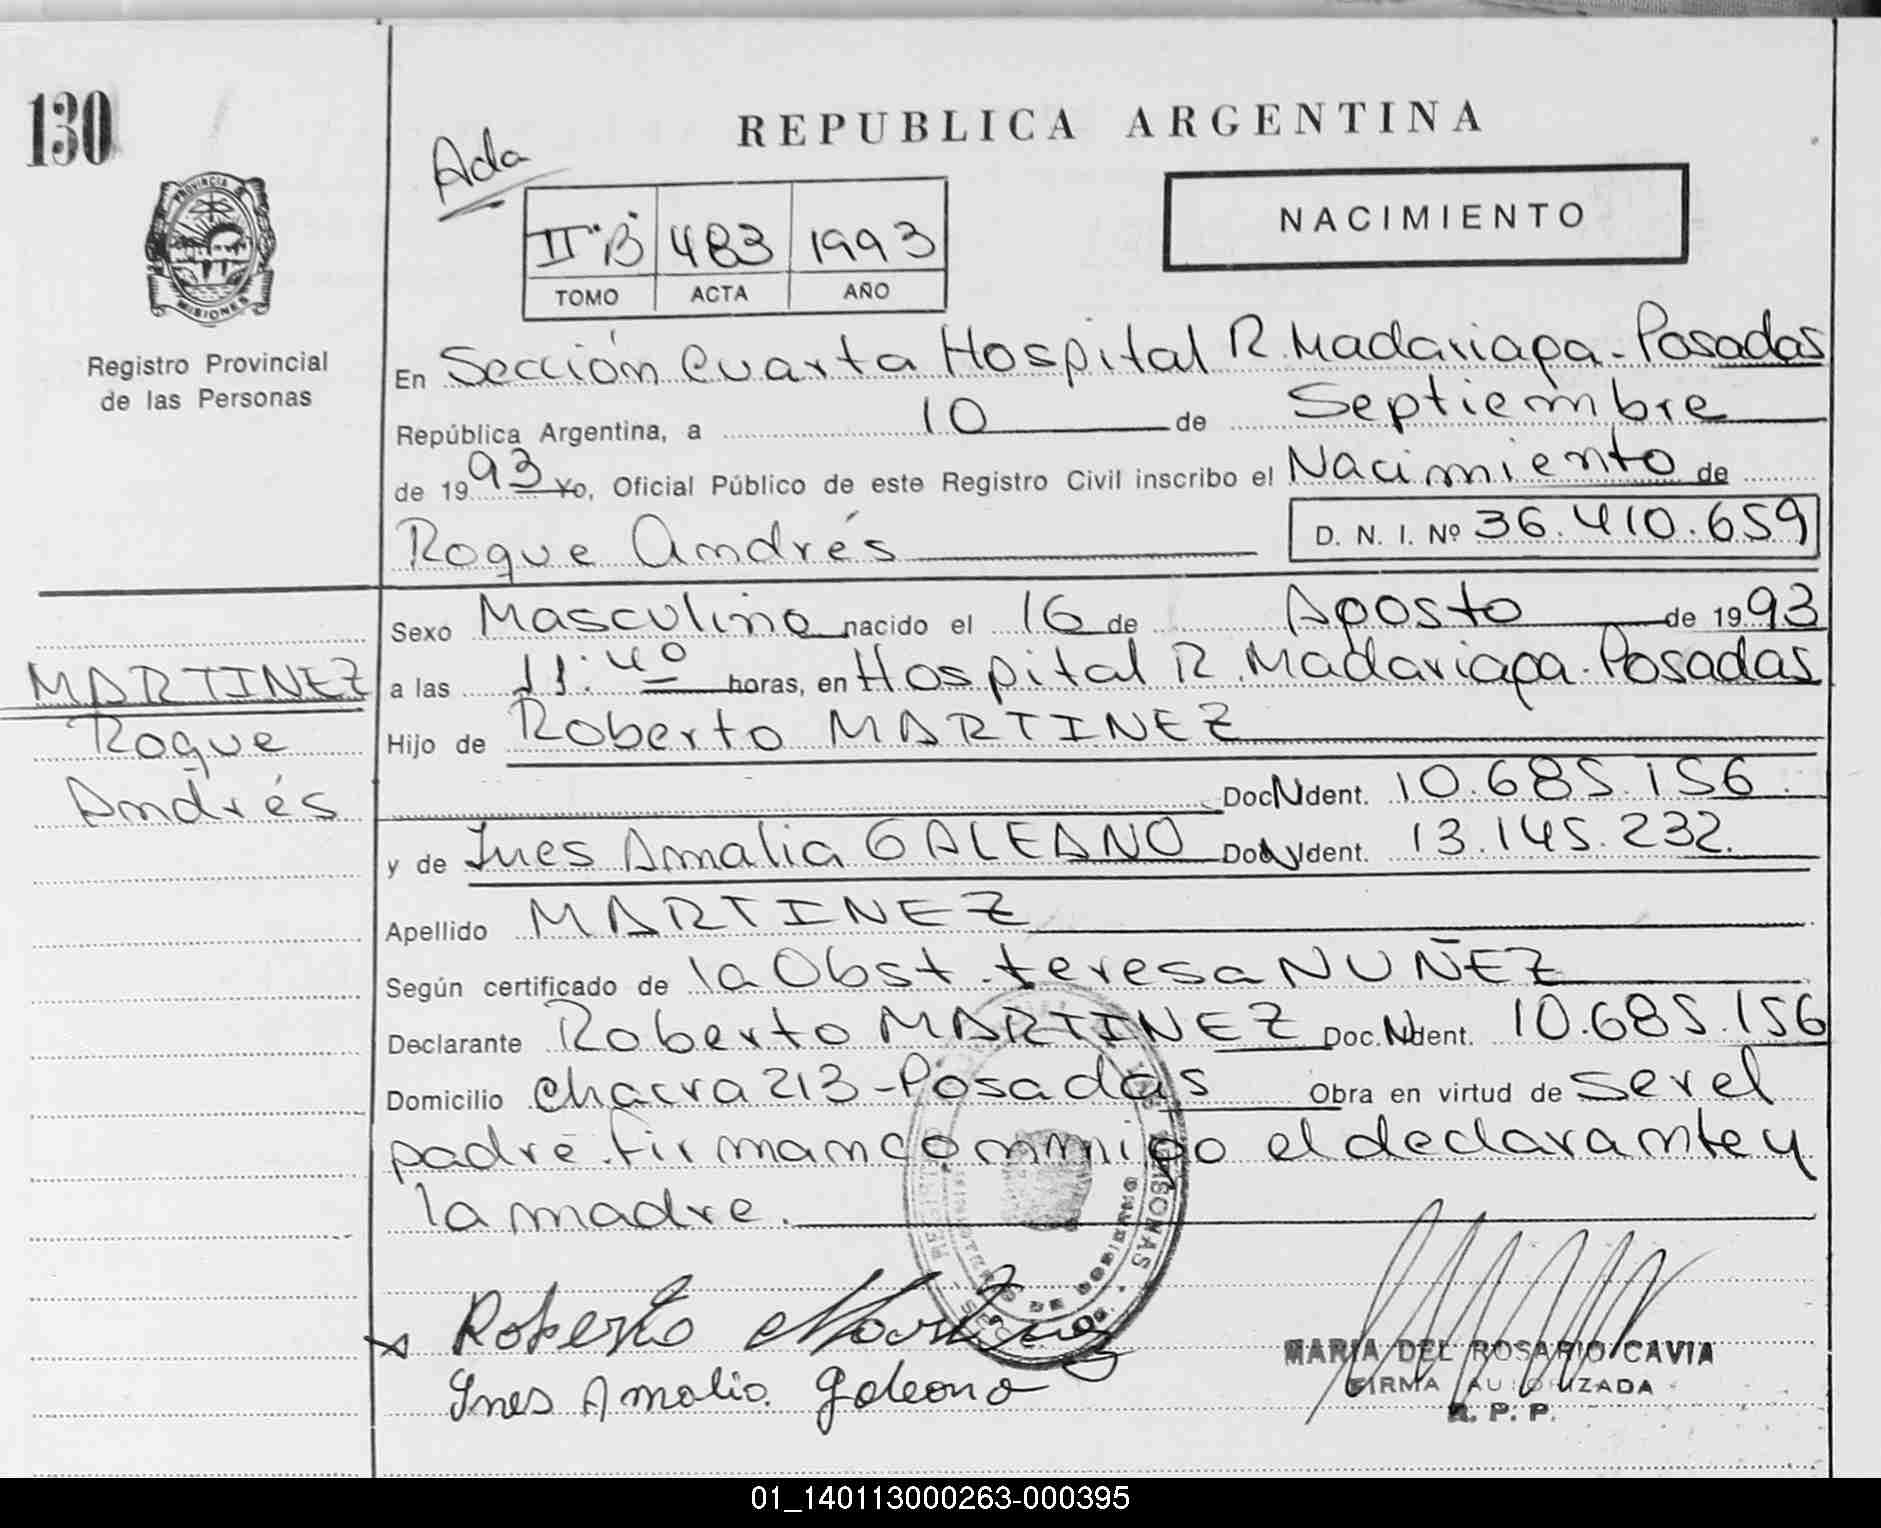 130
REPUBLICA ARGENTINA
Ada
II "B" 483 1993
TOMO ACTA AÑO
NACIMIENTO
PROVINCIA DE
MISIONES
Registro Provincial
de las Personas
En Sección Cuarta Hospital R. Madariaga - Posadas
República Argentina, a 10 de Septiembre
de 1993 Yo, Oficial Público de este Registro Civil inscribo el Nacimiento de
Roque Andrés
D. N. I. Nº 36.410.659
MARTINEZ
Roque
Andrés
Sexo Masculino nacido el 16 de Agosto de 1993
a las 11:40 horas, en Hospital R. Madariaga - Posadas
Hijo de Roberto MARTINEZ
Doc. Ident. 10.685.156
y de Ines Amalia GALEANO Doc. Ident. 13.145.232.
Apellido MARTINEZ
Según certificado de la Obst. teresa NUÑEZ
Declarante Roberto MARTINEZ Doc. Ident. 10.685.156
Domicilio chacra 213 - Posadas Obra en virtud de ser el
padre. firman conmigo el declarante y
la madre.
Roberto Martinez
Ines Amalia Galeano
MARIA DEL ROSARIO CAVIA
FIRMA AUTORIZADA
R. P. P.
01_140113000263-000395